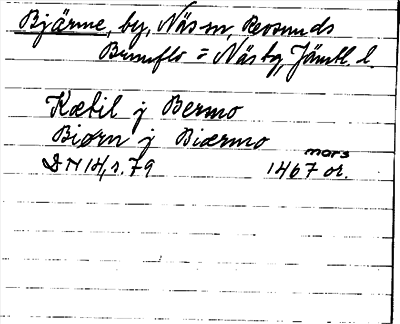 Bjärme, by, Näs sn, Revsunds
Brunflo = Näs tg, Jämtl. l.
Ketil j Bermo
Biørn j Biærmo
DN 14, s. 79 1467 mars or.